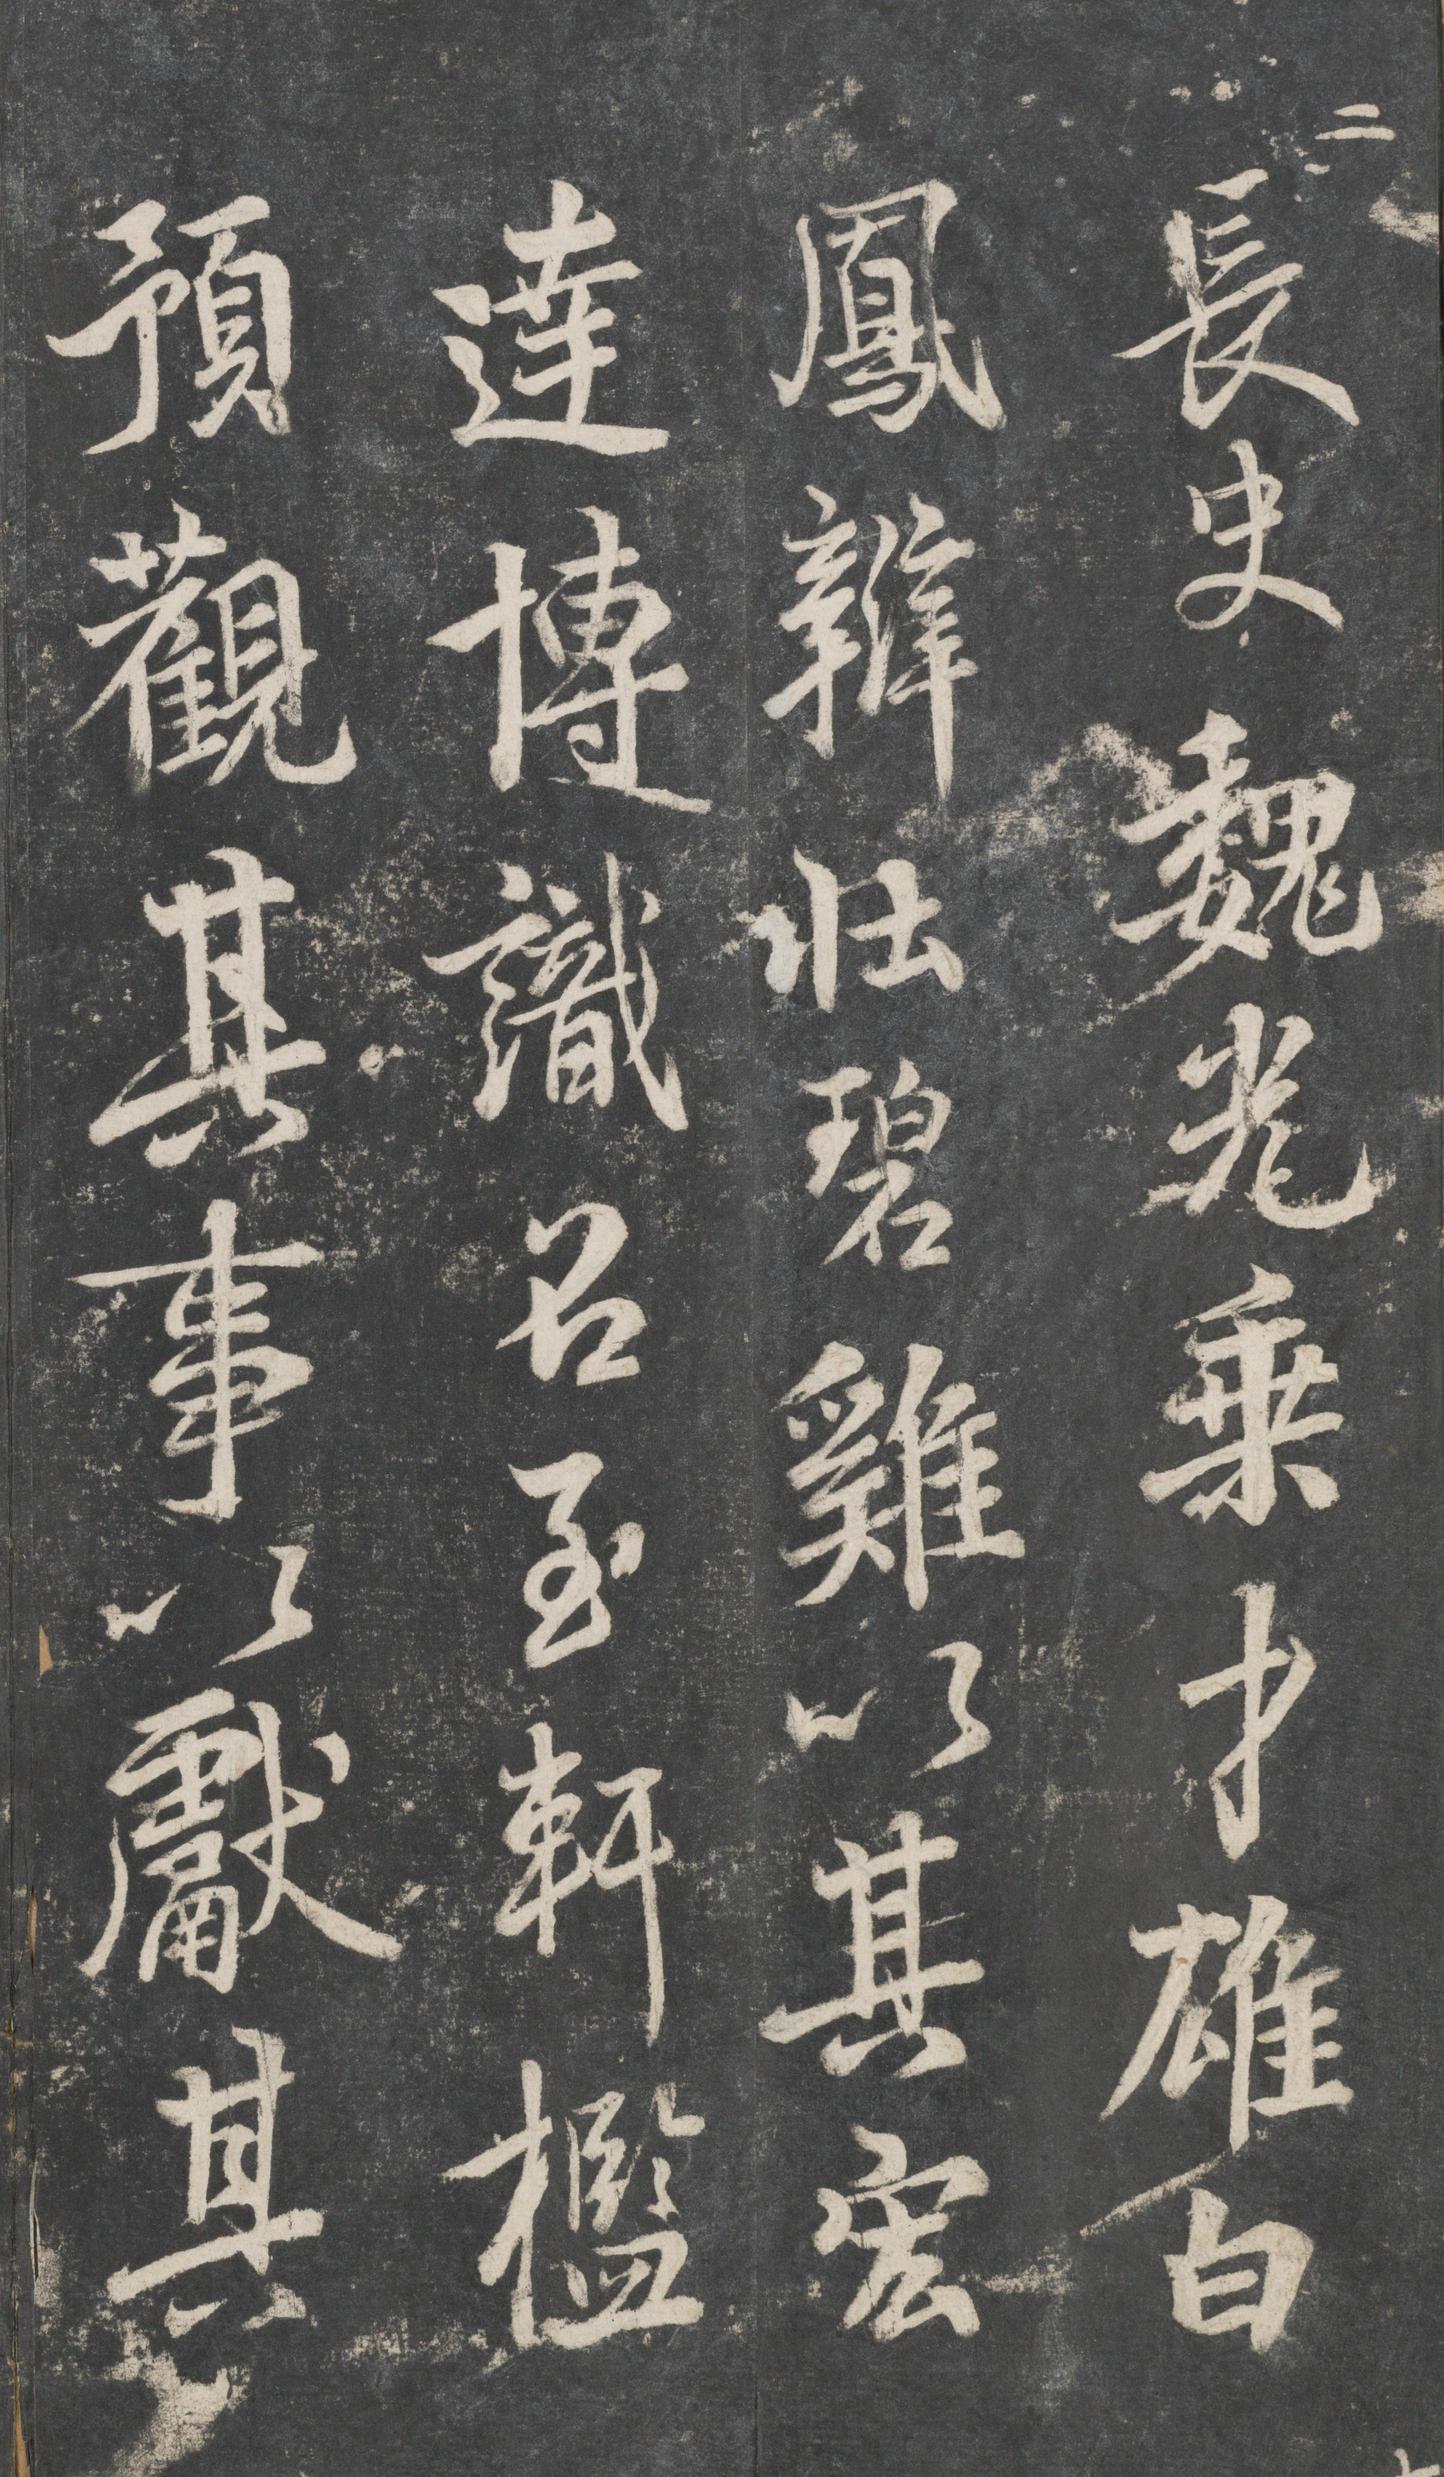 二
長史魏兆乗才雄白
鳳辯壮碧雞以其宏
達博識召至軒檻
預觀其事以獻其